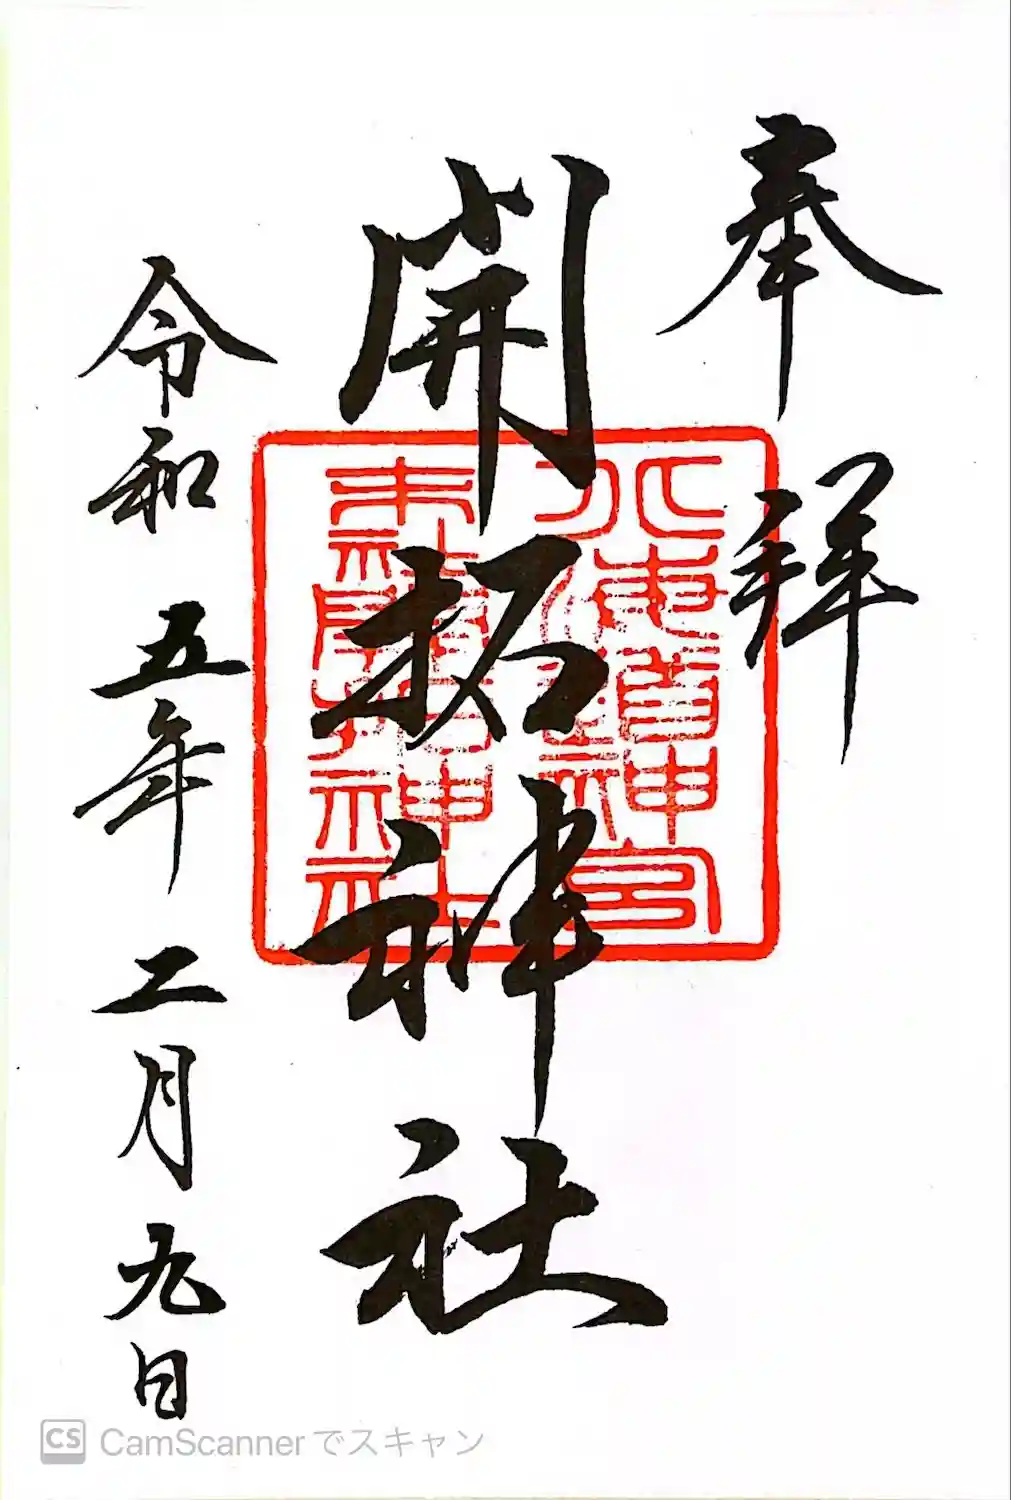 奉拝
開拓神社
北海道神宮
末社開拓神社
令和五年二月九日
CS CamScannerでスキャン